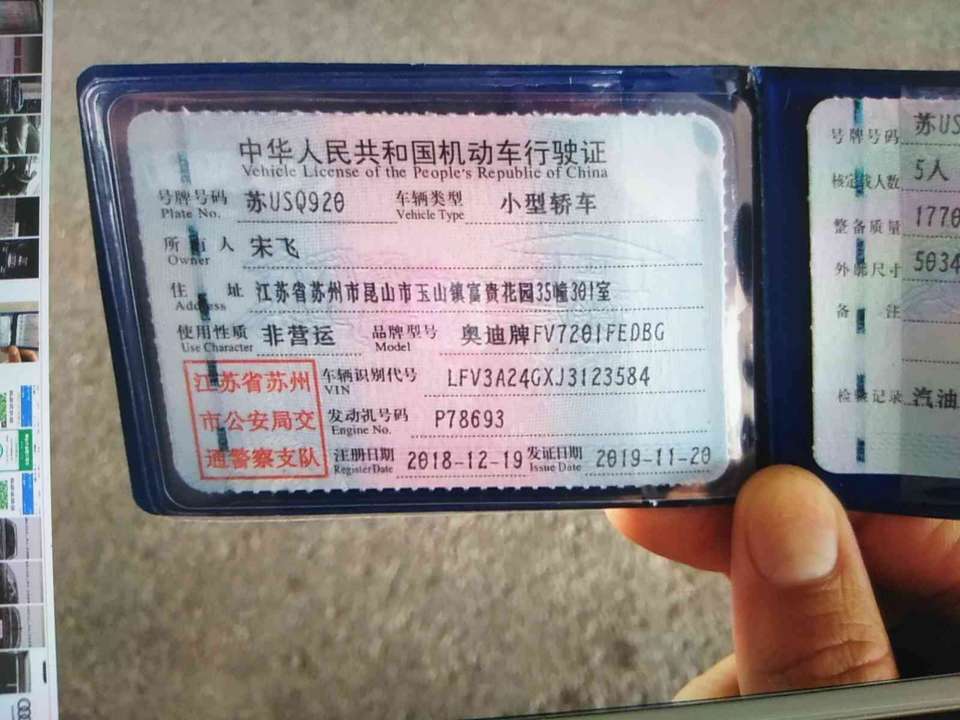 中华人民共和国机动车行驶证
Vehicle License of the People's Republic of China
号牌号码 苏USQ920 车辆类型 小型轿车
Plate No. Vehicle Type
所有人 宋飞
Owner
住址 江苏省苏州市昆山市玉山镇富贵花园35幢301室
Address
使用性质 非营运 品牌型号 奥迪牌FV7201FEDBG
Use Character Model
江苏省苏州
市公安局交
通警察支队
车辆识别代号 LFV3A24GXJ3123584
VIN
发动机号码 P78693
Engine No.
注册日期 2018-12-19 发证日期 2019-11-20
Register Date Issue Date
号牌号码 苏US
核定载人数 5人
整备质量 1770
外廓尺寸 5034
备注
检验记录 汽油